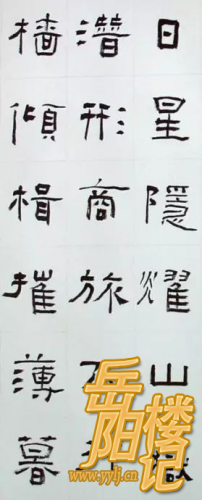 日星隱燿山嶽
潛形商旅不
檣傾楫摧薄暮
岳阳楼记
www.yylj.cn